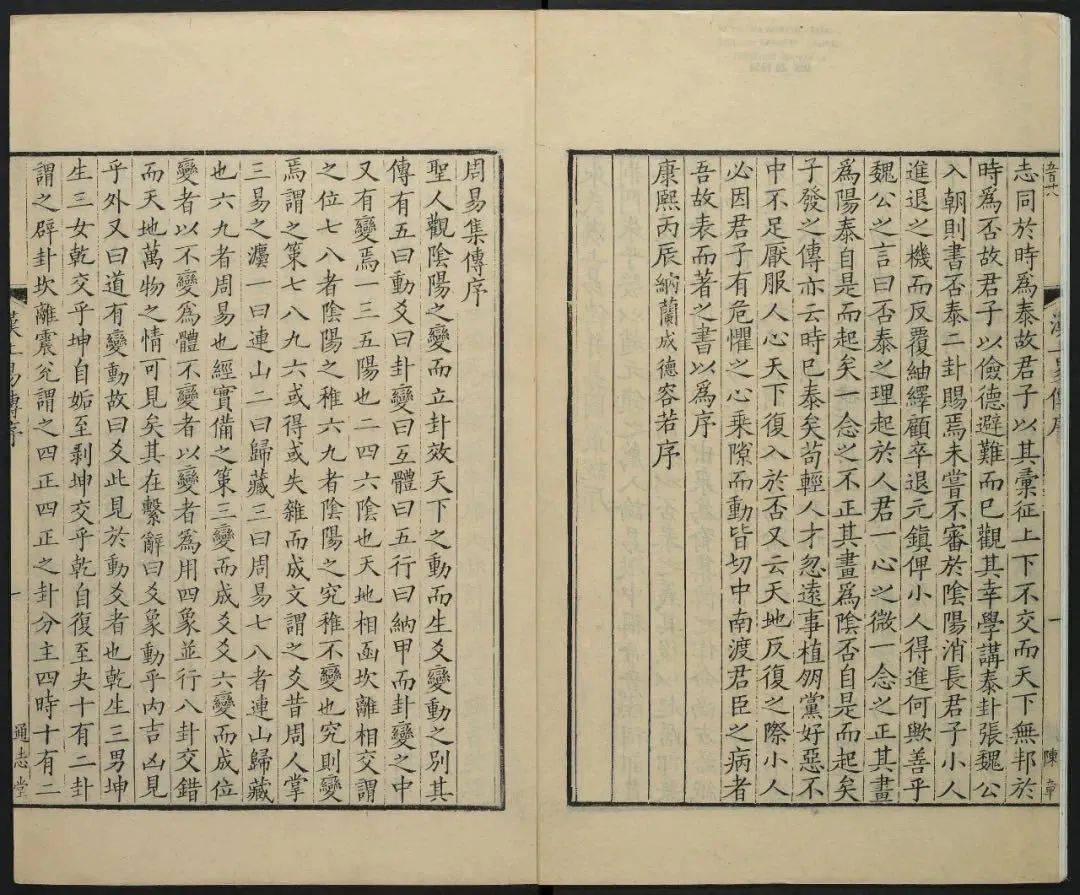 志同於時爲泰故君子以其彙征上下不交而天下無邦於
時爲否故君子以儉德避難而已觀其幸學講泰卦張魏公
入朝則書否泰二卦賜焉未嘗不審於陰陽消長君子小人
進退之機而反覆紬繹顧卒退元鎮俾小人得進何歟善乎
魏公之言曰否泰之理起於人君一心之微一念之正其畫
爲陽泰自是而起矣一念之不正其畫爲陰否自是而起矣
子發之傳亦云時已泰矣苟輕人才忽遠事植朋黨好惡不
中不足厭服人心天下復入於否又云天地反復之際小人
必因君子有危懼之心乘隙而動皆切中南渡君臣之病者
吾故表而著之書以爲序
康熙丙辰納蘭成德容若序
陳章
周易集傳序
聖人觀陰陽之變而立卦效天下之動而生爻變動之別其
傳有五曰動爻曰卦變曰互體曰五行曰納甲而卦變之中
又有變焉一三五陽也二四六陰也天地相函坎離相交謂
之位七八者陰陽之稚六九者陰陽之究稚不變也究則變
焉謂之策七八九六或得或失雜而成文謂之爻昔周人掌
三易之灋一曰連山二曰歸藏三曰周易七八者連山歸藏
也六九者周易也經實備之策三變而成爻爻六變而成位
變者以不變爲體不變者以變者爲用四象並行八卦交錯
而天地萬物之情可見矣其在繫辭曰爻象動乎內吉凶見
乎外又曰道有變動故曰爻此見於動爻者也乾生三男坤
生三女乾交乎坤自姤至剥坤交乎乾自復至夬十有二卦
謂之辟卦坎離震兊謂之四正四正之卦分主四時十有二
漢上易傳序
一
通志堂